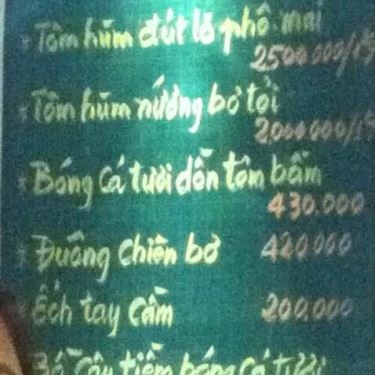 * Tôm hùm đút lò phô mai
2500.000/kg
* Tôm hùm nướng bơ tỏi
2.000.000/
* Bóng cá tươi dồn tôm bằm
430.000
* Đuông chiên bơ 420.000
* Ếch tay cầm 200.000
Bồ câu tiềm bóng cá tươi